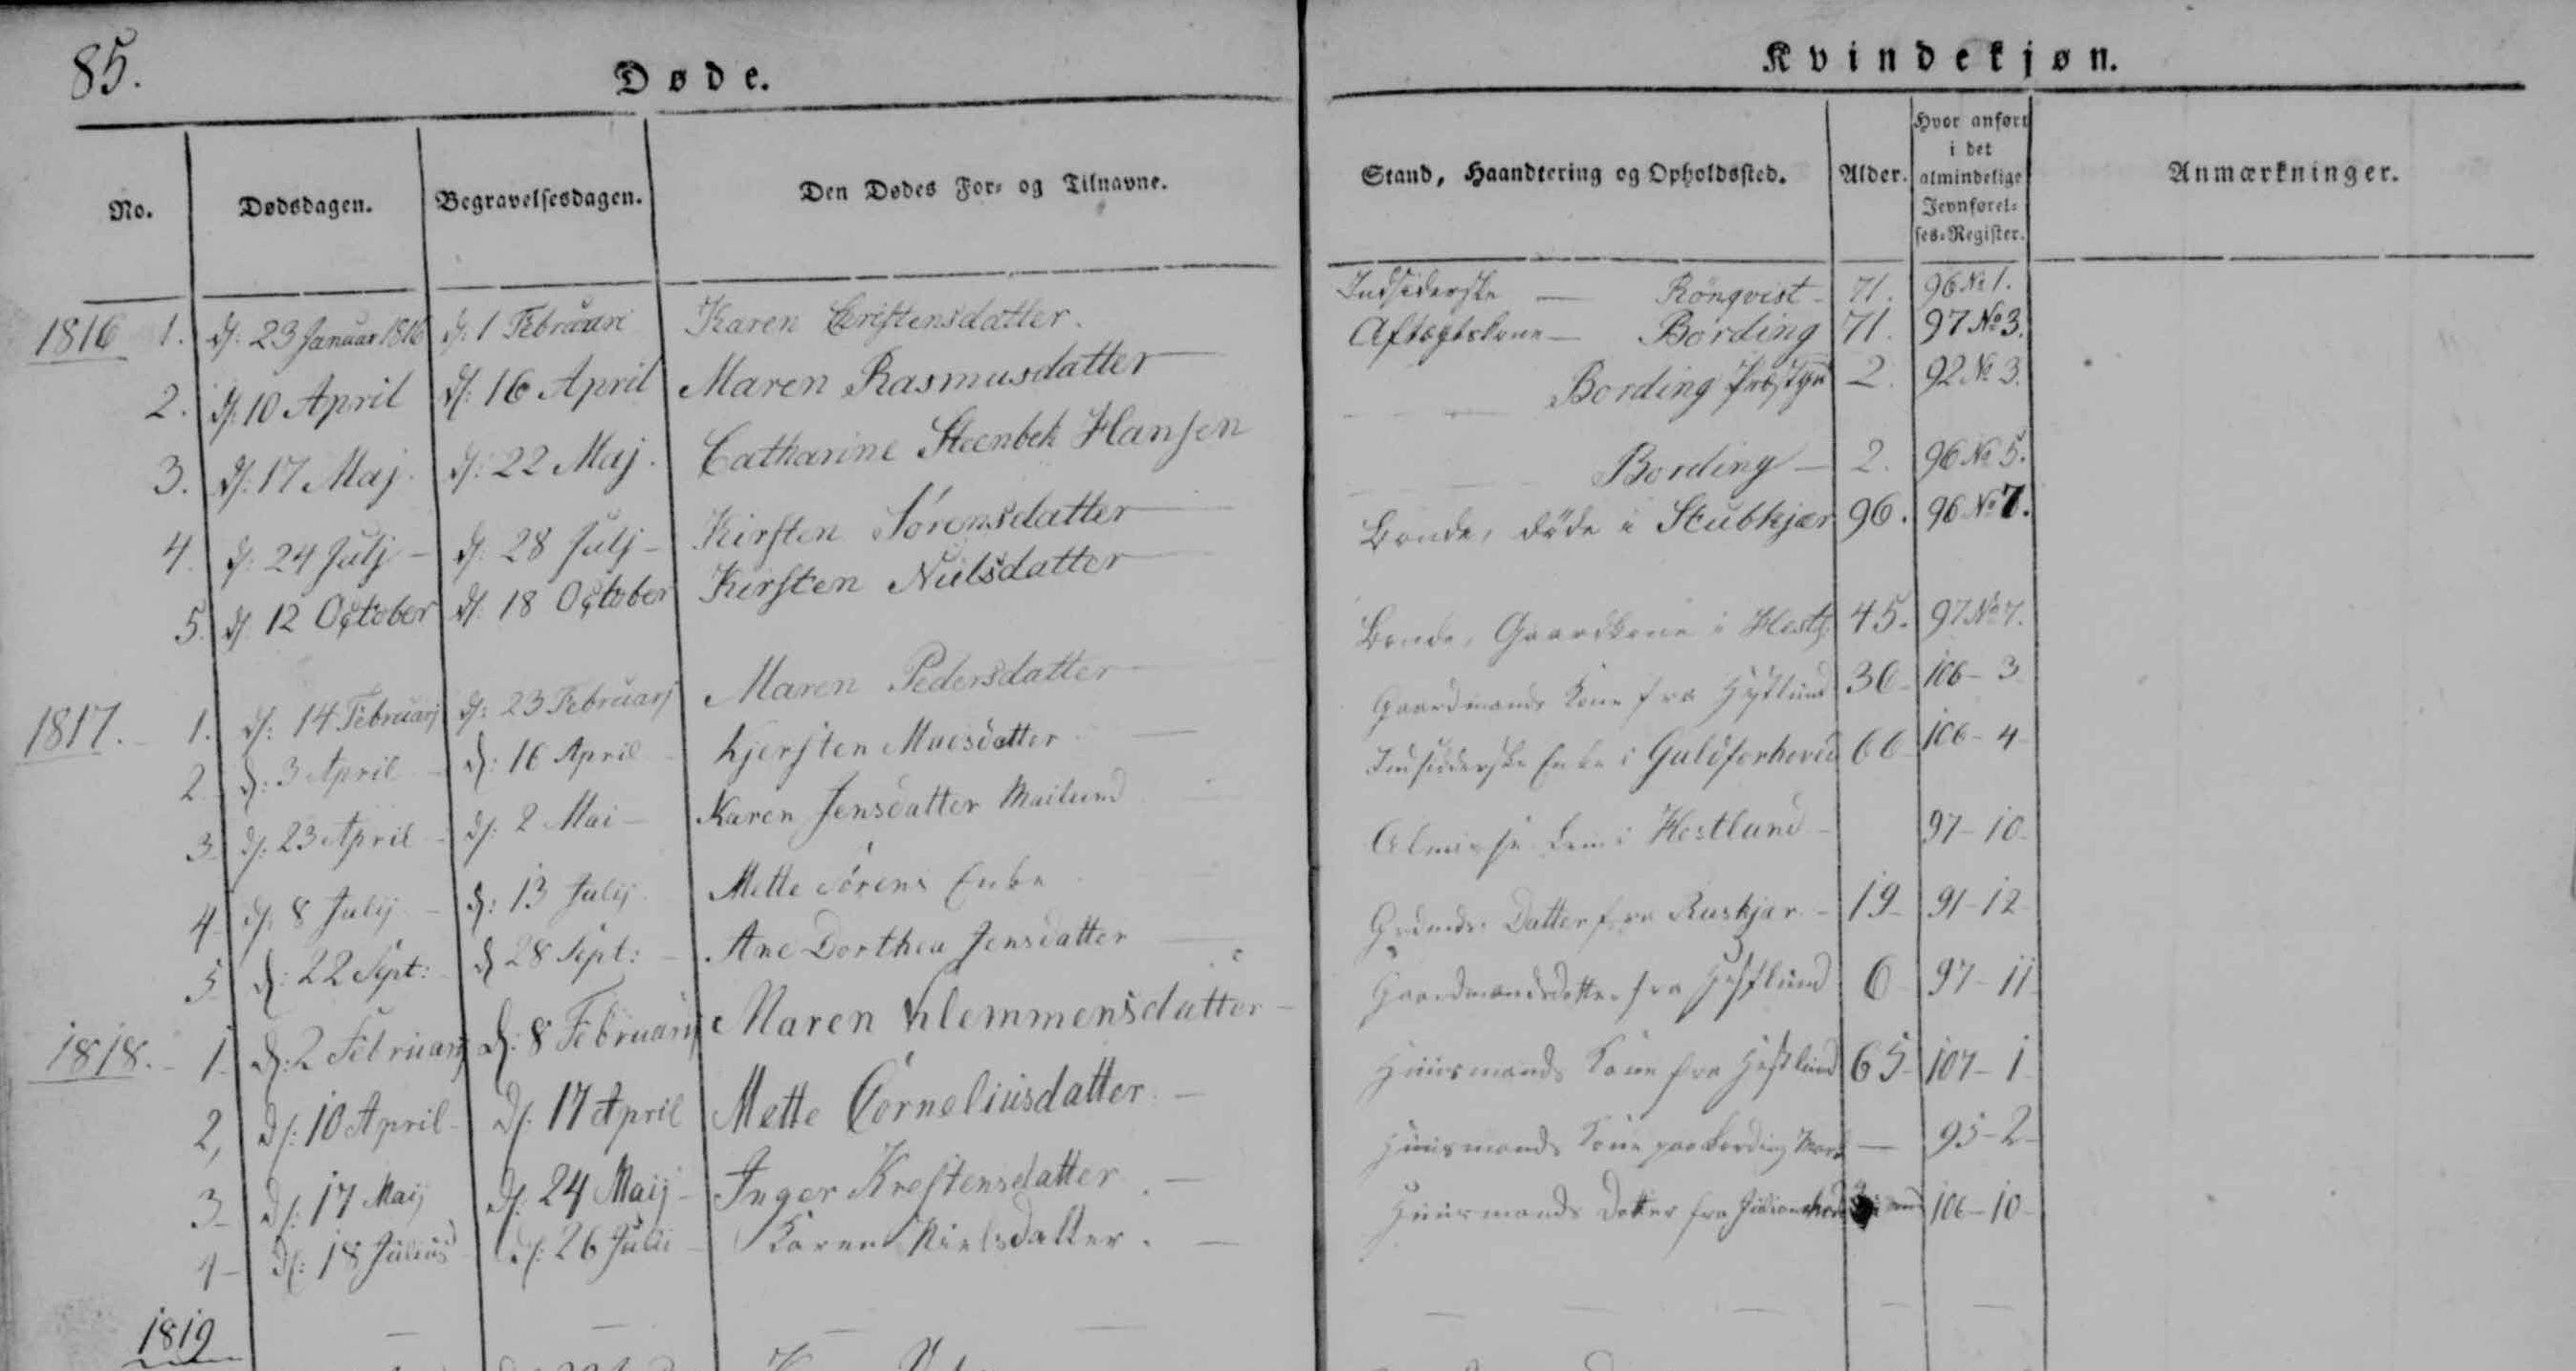 85.
Døde.
Kvindekjøn.
No. Dødsdagen. Begravelsesdagen. Den Dødes For- og Tilnavne. Stand, Haandtering og Opholdssted. Alder. Hvor anført i det almindelige Jevnførelses-Register. Anmærkninger.
1816 1. d: 23 Januar 1816 d: 1 Februari Karen Christensdatter. Indsiderske — Rönqvist - 71. 96 No 1.
2. d: 10 April d: 16 April Maren Rasmusdatter Aftægtskone — Bording 71. 97 No 3.
3. d: 17 Maj. d: 22 Maj. Catharine Steenbek Hansen Bording 2. 92 No 3.
4. d: 24 Julj - d: 28 Julj - Kirsten Sörensdatter Bording — 2. 96 No 5.
5. d: 12 October d: 18 October Kirsten Nielsdatter Bonde, døde i Stubkjær 96. 96 No 7.
1817. 1. d: 14 Februarj d: 23 Februarj Maren Pedersdatter Bonde, Gaardkone i Hestl: 45. 97 No 7.
2 d: 3 April - d: 16 April - Kjersten Maesdatter Gaardmands Kone fra Hestlund 36 - 106 - 3
3 d: 23 April - d: 2 Mai - Karen Jensdatter Mailund Indsidderske Enke i Guldforhoved 66 106 - 4
4 d: 8 Julij - d: 13 Julij Mette Sörens Enke Almisse Lem i Hestlund - 97 - 10
5 d: 22 Sept: d 28 Sept: - Ane Dorthea Jensdatter Grdmds: Datter fra Ruskjær - 19 - 91 - 12
1818. - 1 d: 2 Februarij d: 8 Februarij Maren Klemmensdatter - Gaardmandsdatter fra Hestlund 6 - 97 - 11
2, d: 10 April - d: 17 April Mette Corneliusdatter. - Huusmands Kone fra Hestlund 65 - 107 - 1
3 - d: 17 Maij d: 24 Maij - Inger Krestensdatter. - Huusmands Kone paa Bording Mark — 95 - 2 -
4 - d: 18 Julius d: 26 Julii - Karen Nielsdatter. - Huusmands Datter fra 106 - 10 -
1819